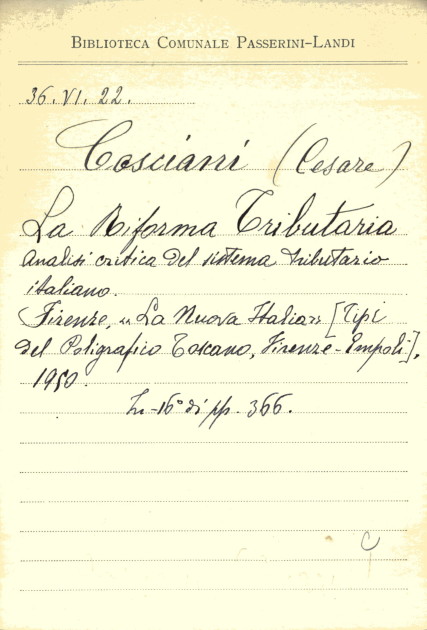 BIBLIOTECA COMUNALE PASSERINI-LANDI
36. VI. 22.
Cosciani (Cesare)
La Riforma Tributaria
Analisi critica del sistema tributario
italiano.
Firenze, "La Nuova Italia" [Tipi
del Poligrafico Toscano, Firenze-Empoli],
1950.
In-16° di pp. 366.
C